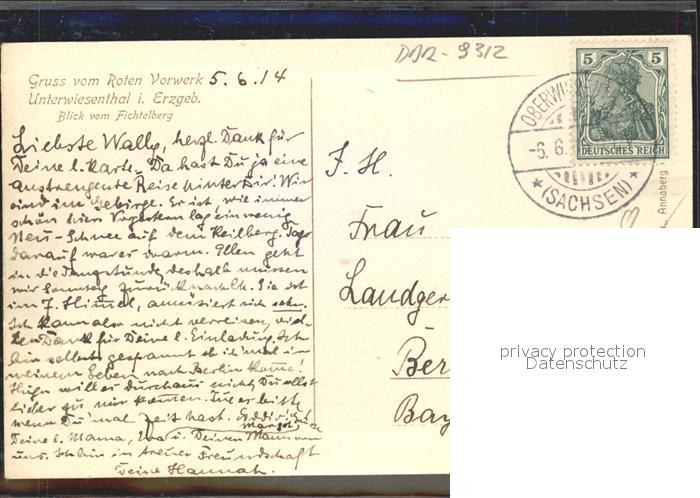 DDR-9312
Gruss vom Roten Vorwerk 5.6.14
Unterwiesenthal i. Erzgeb.
Blick vom Fichtelberg
5 5
DEUTSCHES REICH
OBERWIS
-6.6.
*(SACHSEN)*
Annaberg
Liebste Wally, herzl. Dank für
Deine l. Karte. Da hast Du ja eine
anstrengende Reise hinter Dir! Wir
sind im Gebirge. Es ist wie immer
schön hier. Vorgestern lag ein wenig
Neu-Schnee auf dem Keilberg. Tags
darauf war es warm. Ellen geht
in die Tanzstunde, deshalb müssen
wir Sonntag zurück nach Ch. Sie ist
im 7. Himmel, amüsiert sich sehr.
Ich kann also nicht verreisen, vie-
len Dank für Deine l. Einladung. Ich
bin selbst gespannt ob ich 'mal in
meinem Leben nach Berlin komme!
Hugo will es durchaus nicht, Du sollst
lieber zu mir kommen. Tu es bitte
wenn Du 'mal Zeit hast.
Margot
Deine l. Mama, Eva u. Deinen Mann von
uns. Ich bin in treuer Freundschaft
Deine Hannah.
F. H.
Frau
Landger
Ber
Bay
privacy protection
Datenschutz